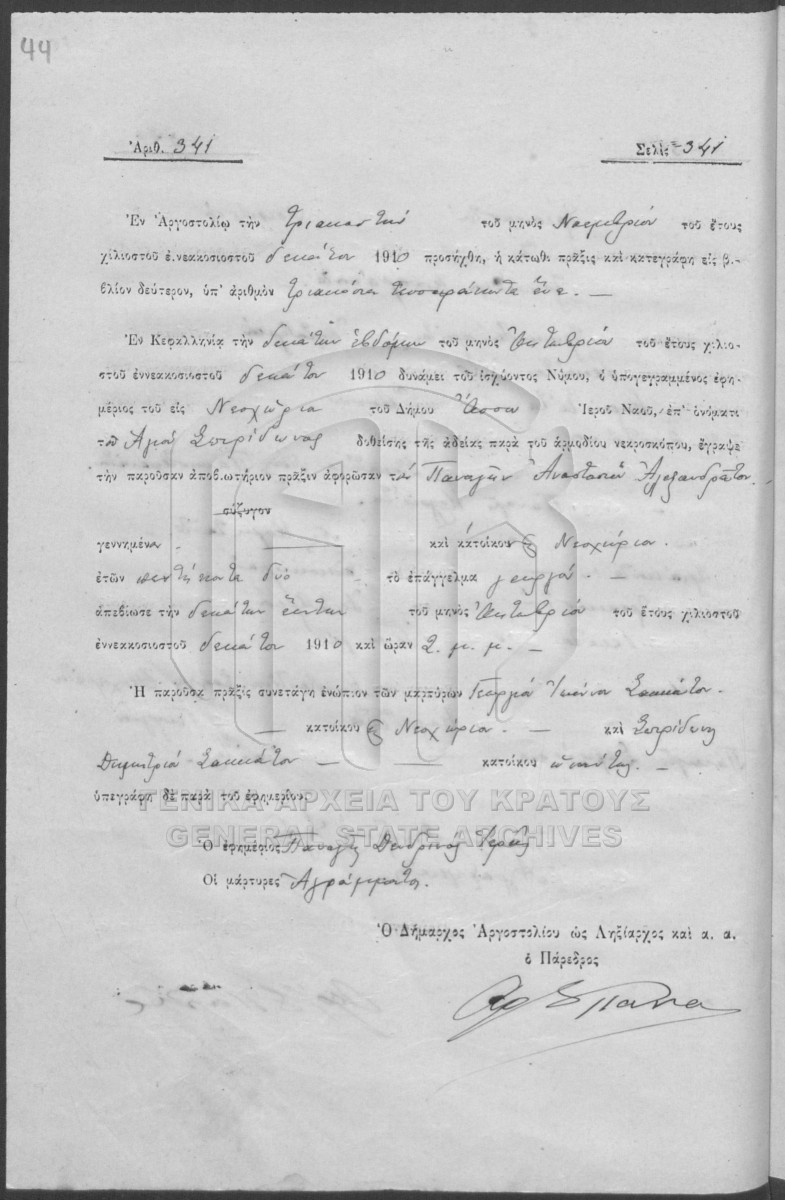 44
Ἀριθ. 341
Σελὶς 341
Ἐν Ἀργοστολίῳ τὴν τριακοστὴν τοῦ μηνὸς Νοεμβρίου τοῦ ἔτους
χιλιοστοῦ ἐννεακοσιοστοῦ δεκάτου 1910 προσήχθη, ἡ κάτωθι πρᾶξις καὶ κατεγράφη εἰς β.-
βλίον δεύτερον, ὑπ' ἀριθμὸν τριακόσια τεσσαράκοντα ἕνα. —
Ἐν Κεφαλληνίᾳ τὴν δεκάτην ἑβδόμην τοῦ μηνὸς Ὀκτωβρίου τοῦ ἔτους χιλιο-
στοῦ ἐννεακοσιοστοῦ δεκάτου 1910 δυνάμει τοῦ ἰσχύοντος Νόμου, ὁ ὑπογεγραμμένος ἐφη-
μέριος τοῦ εἰς Νεοχώρια τοῦ Δήμου Ἄσσου Ἱεροῦ Ναοῦ, ἐπ' ὀνόματι
τοῦ Ἁγίου Σπυρίδωνος δοθείσης τῆς ἀδείας παρὰ τοῦ ἁρμοδίου νεκροσκόπου, ἔγραψε
τὴν παροῦσαν ἀποβιωτήριον πρᾶξιν ἀφορῶσαν τὸν Παναγῆν Ἀναστασίου Ἀλεξανδρᾶτον.
σύζυγον
γεννημένον — καὶ κάτοικον Νεοχωρίου.
ἐτῶν πεντήκοντα δύο τὸ ἐπάγγελμα γεωργοῦ. —
ἀπεβίωσε τὴν δεκάτην ἕκτην τοῦ μηνὸς Ὀκτωβρίου τοῦ ἔτους χιλιοστοῦ
ἐννεακοσιοστοῦ δεκάτου 1910 καὶ ὥραν 2. μ. μ. —
Ἡ παροῦσα πρᾶξις συνετάγη ἐνώπιον τῶν μαρτύρων Γεωργίου Ἰωάννου Σακκάτου.
— κατοίκου Νεοχωρίου. — καὶ Σπυρίδωνος
Δημητρίου Σακκάτου — κατοίκου —
ὑπεγράφη δὲ παρὰ τοῦ ἐφημερίου.
ΓΕΝΙΚΑ ΑΡΧΕΙΑ ΤΟΥ ΚΡΑΤΟΥΣ
GENERAL STATE ARCHIVES
Ὁ ἐφημέριος Παναγῆς Δενδρινὸς Ἱερεὺς
Οἱ μάρτυρες Ἀγράμματοι.
Ὁ Δήμαρχος Ἀργοστολίου ὡς Ληξίαρχος καὶ α. α.
ὁ Πάρεδρος